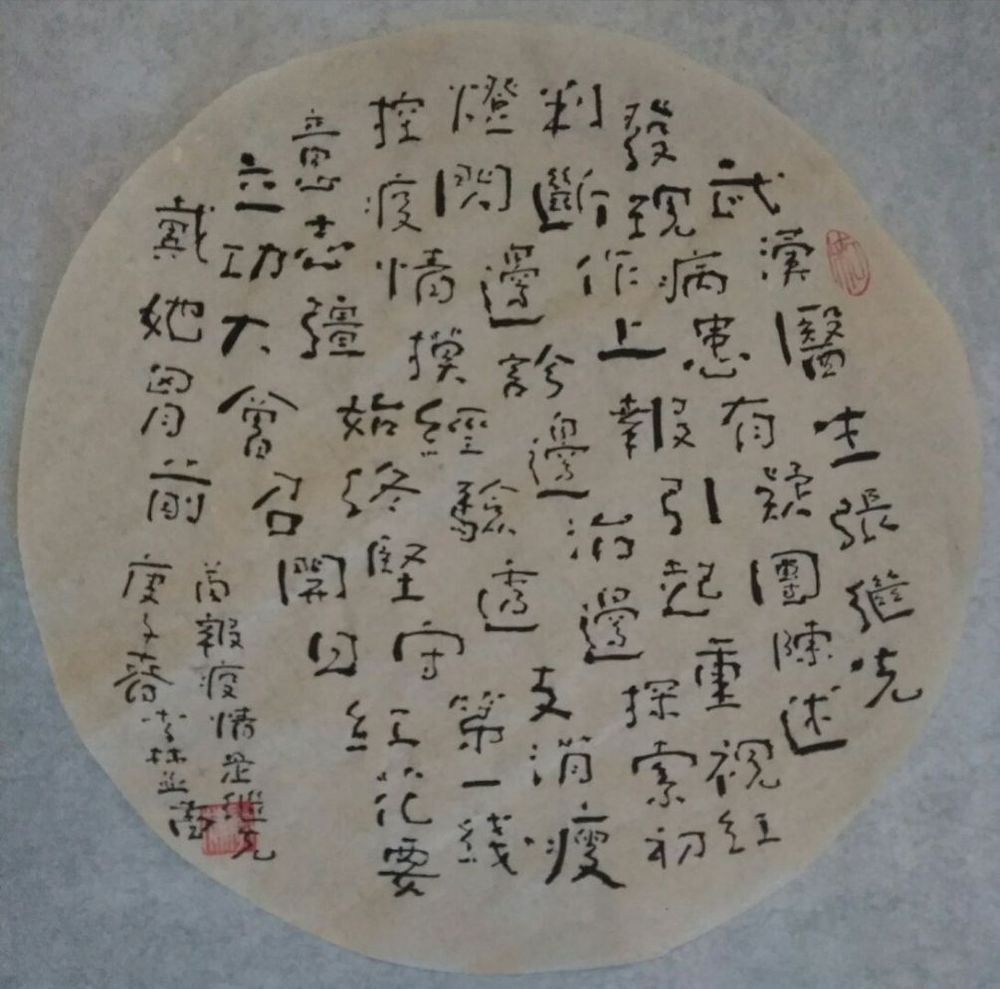 武漢醫生張繼先
發現病患有疑團陳述
判斷作上報引起重視紅
燈閃邊診邊治邊探索初
控疫情摸經驗透支消瘦
意志彊始終堅守第一綫
立功大會召開日紅花要
戴她胷前
首報疫情是繼先
庚子春李林並書